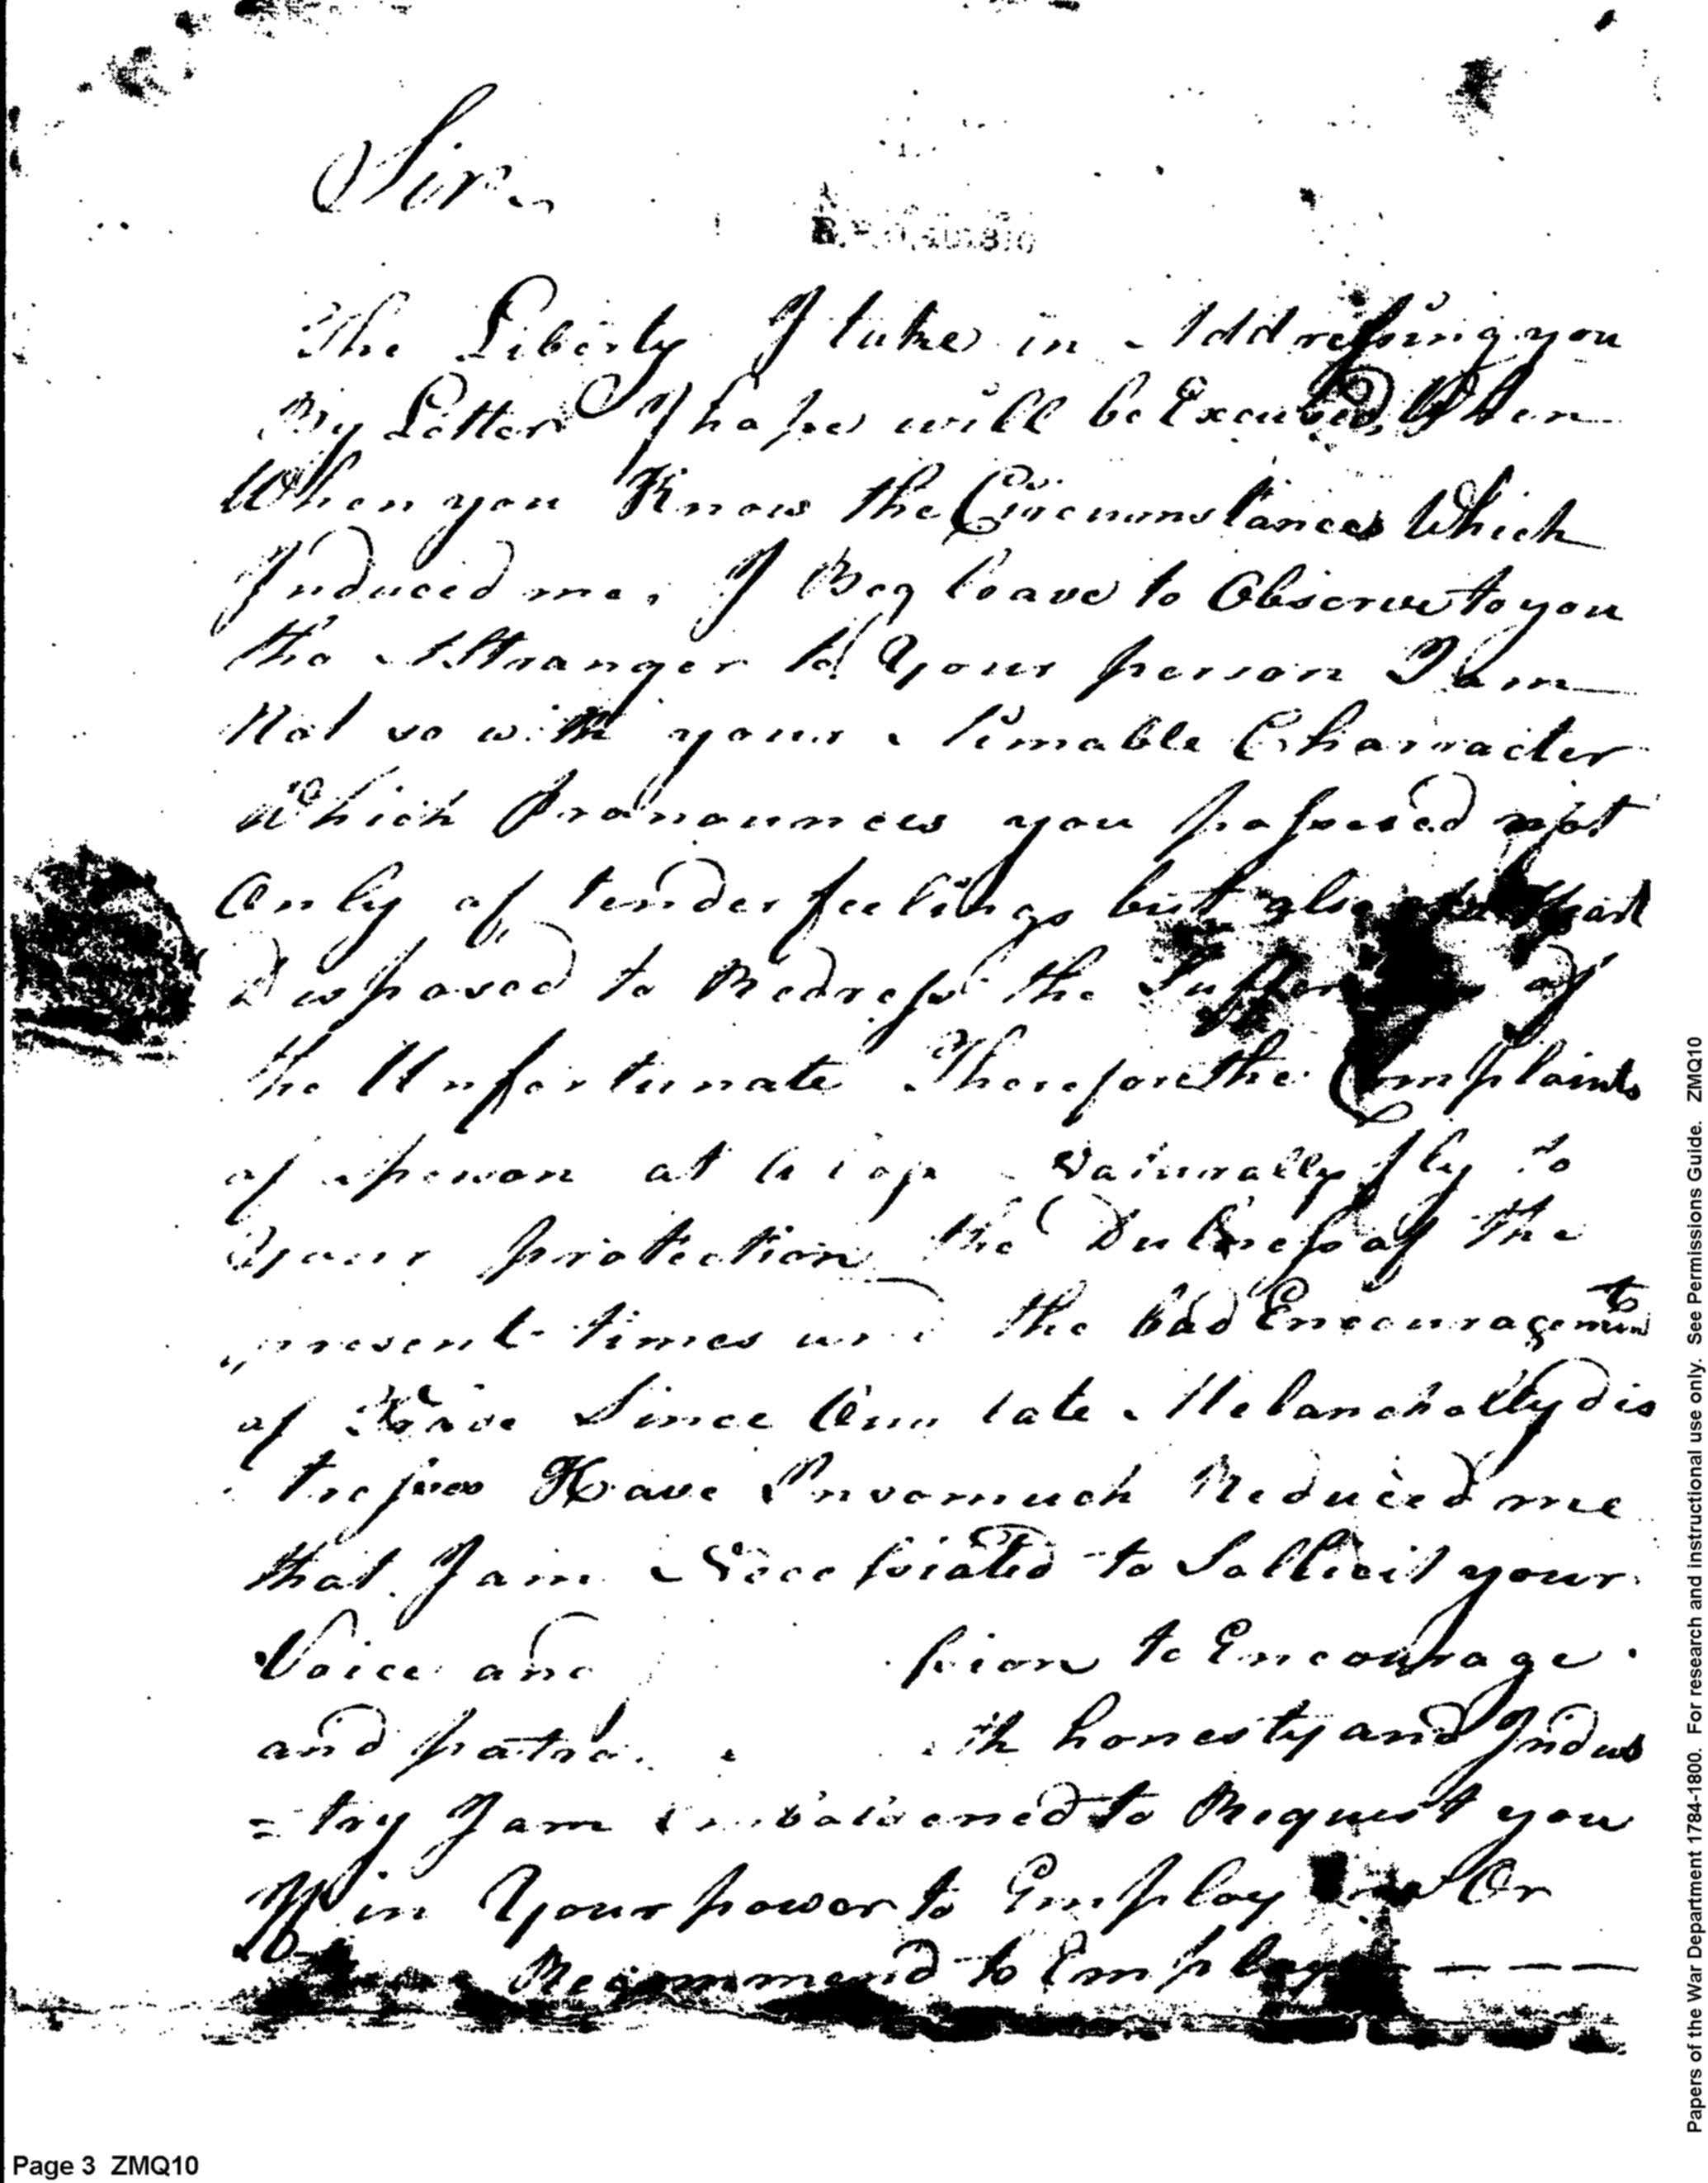 Sir
The Liberty I take in Addressing you
By Letter I hope will be Excused When
When you Know the Circumstances Which
Induced me, I Beg leave to Observe to you
tho A Stranger to Your person I am
Not so with your Charracter
Which pronounces you possesed not
Only of tender feelings but also Heart
Disposed to Redress the of
the Unfortunate Therefore the Complaints
of a person at Naturally fly to
Your protection the Dulness of the
present times and the bad Encouragement
of Since Our late Melanchollydis
tresses Have Insomuch Reduced me
that I am Necessiated to Sollicit your
Voice and ssion to Encourage
and patro th honesty and Indus
=try I am Emboldened to Request you
If in Your power to Employ me Or
Recommend to Employ - - - -
Page 3 ZMQ10
Papers of the War Department 1784-1800. For research and instructional use only. See Permissions Guide. ZMQ10